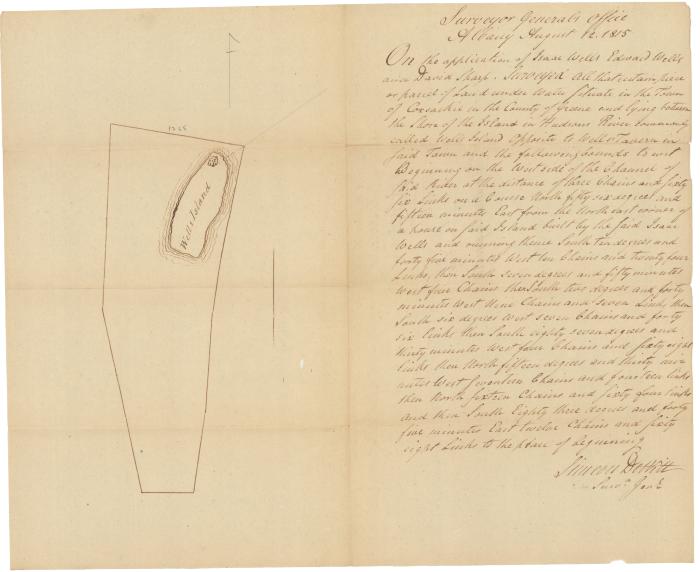 1265
Wells Island
Surveyor Generals Office
Albany August 12. 1815
On the application of Isaac Wells Edward Wells
and David Sharp. Surveyed all that certain piece
or parcel of Land under Water Situate in the Town
of Coxsackie in the County of Greene and lying between
the Shore of the Island in Hudsons River commonly
called Wells Island Opposite to Wells Tavern in
Said Town and the following bounds to wit
Beginning on the West side of the Channel of
Said River at the distance of three Chains and sixty
six Links on a Course North fifty six degrees and
fifteen minutes East from the North east corner of
a house on said Island built by the said Isaac
Wells and running thence South ten degrees and
forty five minutes West ten Chains and twenty four
Links, then South Seven degrees and fifty minutes
West four Chains then South two degrees and forty
minutes West Nine Chains and Seven Links then
South six degrees West seven Chains and forty
six links then South eighty seven degrees and
thirty minutes West four Chains and sixty eight
links then North fifteen degrees and thirty mi
nutes West Seventeen Chains and fourteen links
then North Sixteen Chains and sixty four links
and then South Eighty three degrees and forty
five minutes East twelve Chains and sixty
eight Links to the place of beginning
Simeon DeWitt
Survr. Genl.